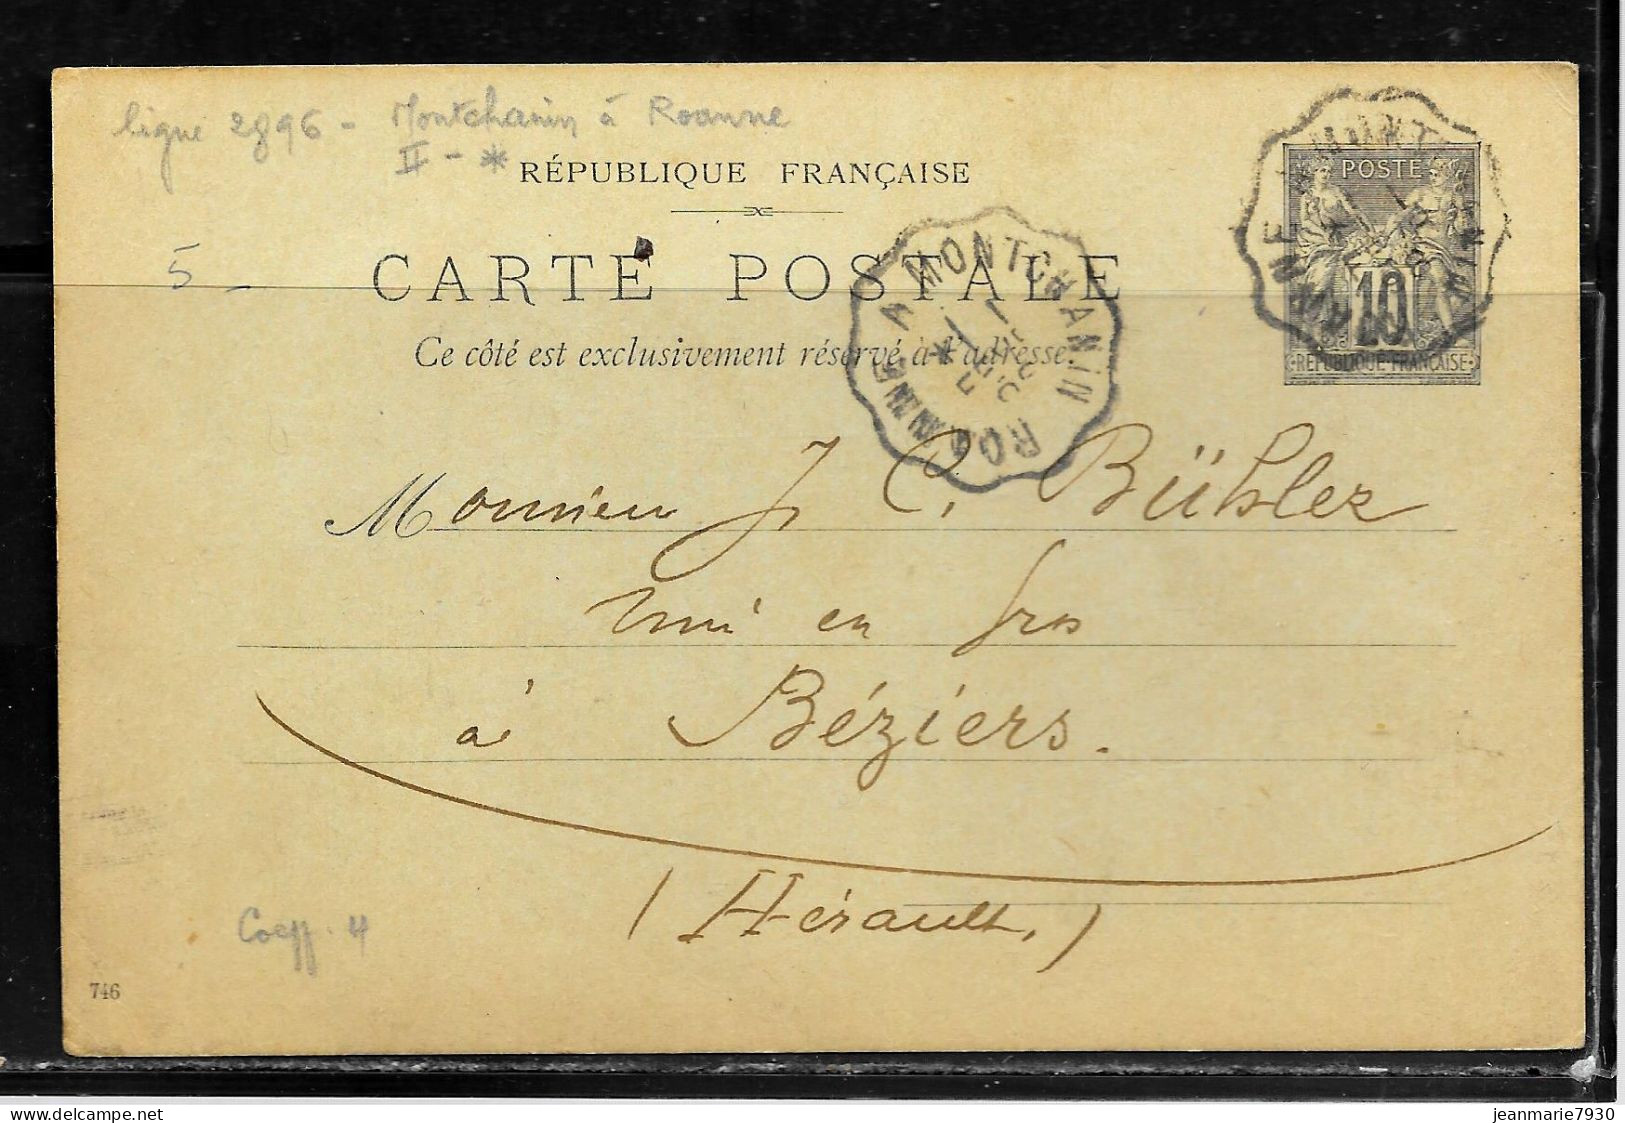 ligne 2896 - Montchanin à Roanne
II - *
RÉPUBLIQUE FRANÇAISE
CARTE POSTALE
Ce côté est exclusivement réservé à l'adresse.
POSTE
10
RÉPUBLIQUE FRANÇAISE
A MONTCHANIN
5 -
Monsieur J C. Bühler
en gros
à Béziers.
(Hérault,)
Coeff. 4
746
jeanmarie7930